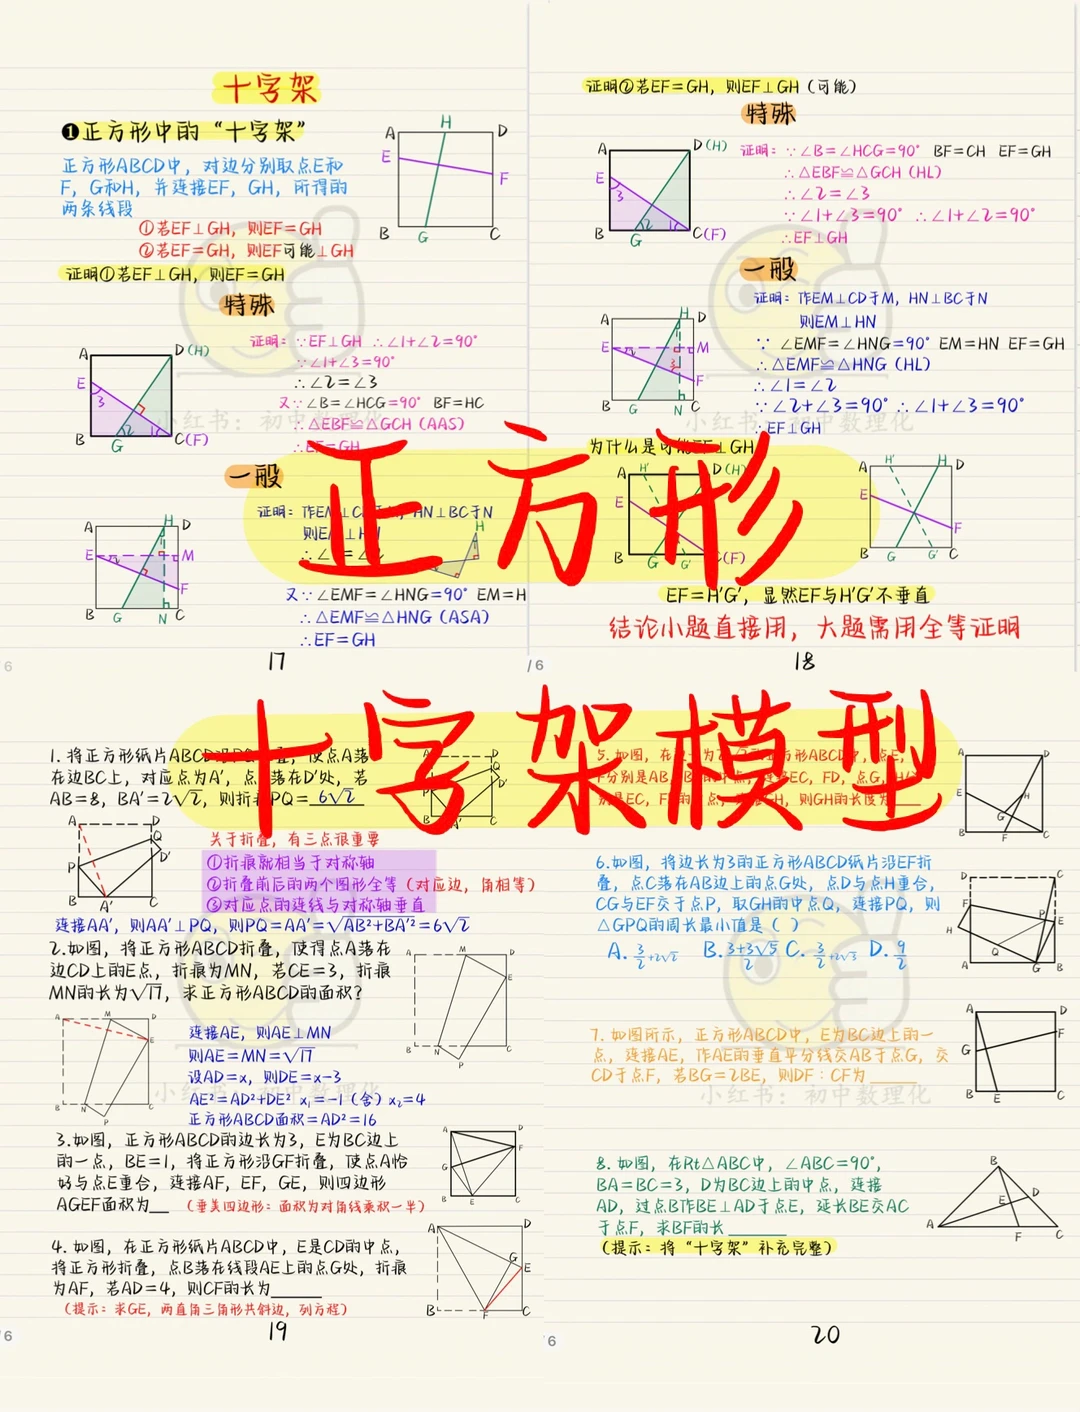 十字架
❶正方形中的“十字架”
正方形ABCD中，对边分别取点E和
F，G和H，并连接EF，GH，所得的
两条线段
①若EF⊥GH，则EF=GH
②若EF=GH，则EF可能⊥GH
证明①若EF⊥GH，则EF=GH
特殊
证明：∵EF⊥GH ∴∠1+∠2=90°
∵∠1+∠3=90°
∴∠2=∠3
又∵∠B=∠HCG=90° BF=HC
∴△EBF≌△GCH (AAS)
∴EF=GH
一般
证明：作EM⊥CD于M，HN⊥BC于N
则EM⊥HN
又∵∠EMF=∠HNG=90° EM=H
∴△EMF≌△HNG (ASA)
∴EF=GH
17
证明②若EF=GH，则EF⊥GH（可能）
特殊
证明：∵∠B=∠HCG=90° BF=CH EF=GH
∴△EBF≌△GCH (HL)
∴∠2=∠3
∵∠1+∠3=90° ∴∠1+∠2=90°
∴EF⊥GH
一般
证明：作EM⊥CD于M，HN⊥BC于N
则EM⊥HN
∵ ∠EMF=∠HNG=90° EM=HN EF=GH
∴△EMF≌△HNG (HL)
∴∠1=∠2
∵∠2+∠3=90° ∴∠1+∠3=90°
∴EF⊥GH
为什么是可能EF⊥GH
EF=H'G'，显然EF与H'G'不垂直
结论小题直接用，大题需用全等证明
18
正方形
十字架模型
小红书：初中数理化
1. 将正方形纸片ABCD沿PQ折叠，使点A落
在边BC上，对应点为A'，点D落在D'处，若
AB=8，BA'=2√2，则折痕PQ= 6√2
关于折叠，有三点很重要
①折痕就相当于对称轴
②折叠前后的两个图形全等（对应边，角相等）
③对应点的连线与对称轴垂直
连接AA'，则AA'⊥PQ，则PQ=AA'=√AB²+BA'²=6√2
2.如图，将正方形ABCD折叠，使得点A落在
边CD上的E点，折痕为MN，若CE=3，折痕
MN的长为√17，求正方形ABCD的面积？
连接AE，则AE⊥MN
则AE=MN=√17
设AD=x，则DE=x-3
AE²=AD²+DE² x₁=-1（舍）x₂=4
正方形ABCD面积=AD²=16
3.如图，正方形ABCD的边长为3，E为BC边上
的一点，BE=1，将正方形沿GF折叠，使点A恰
好与点E重合，连接AF，EF，GE，则四边形
AGEF面积为__ （垂美四边形：面积为对角线乘积一半）
4. 如图，在正方形纸片ABCD中，E是CD的中点，
将正方形折叠，点B落在线段AE上的点G处，折痕
为AF，若AD=4，则CF的长为______
（提示：求GE，两直角三角形共斜边，列方程）
19
5. 如图，在边长为2
正方形ABCD中，点E，
F分别是AB，B
的中点，连接EC，FD，点G，H
别是EC，F
的
点，
H，则GH的长度为___
6.如图，将边长为3的正方形ABCD纸片沿EF折
叠，点C落在AB边上的点G处，点D与点H重合，
CG与EF交于点P，取GH的中点Q，连接PQ，则
△GPQ的周长最小值是（ ）
A. 3/2+2√2 B. 3+3√5/2 C. 3/2+2√3 D. 9/2
7. 如图所示，正方形ABCD中，E为BC边上的一
点，连接AE，作AE的垂直平分线交AB于点G，交
CD于点F，若BG=2BE，则DF：CF为 _____
8. 如图，在Rt△ABC中，∠ABC=90°，
BA=BC=3，D为BC边上的中点，连接
AD，过点B作BE⊥AD于点E，延长BE交AC
于点F，求BF的长______
（提示：将“十字架”补充完整）
20